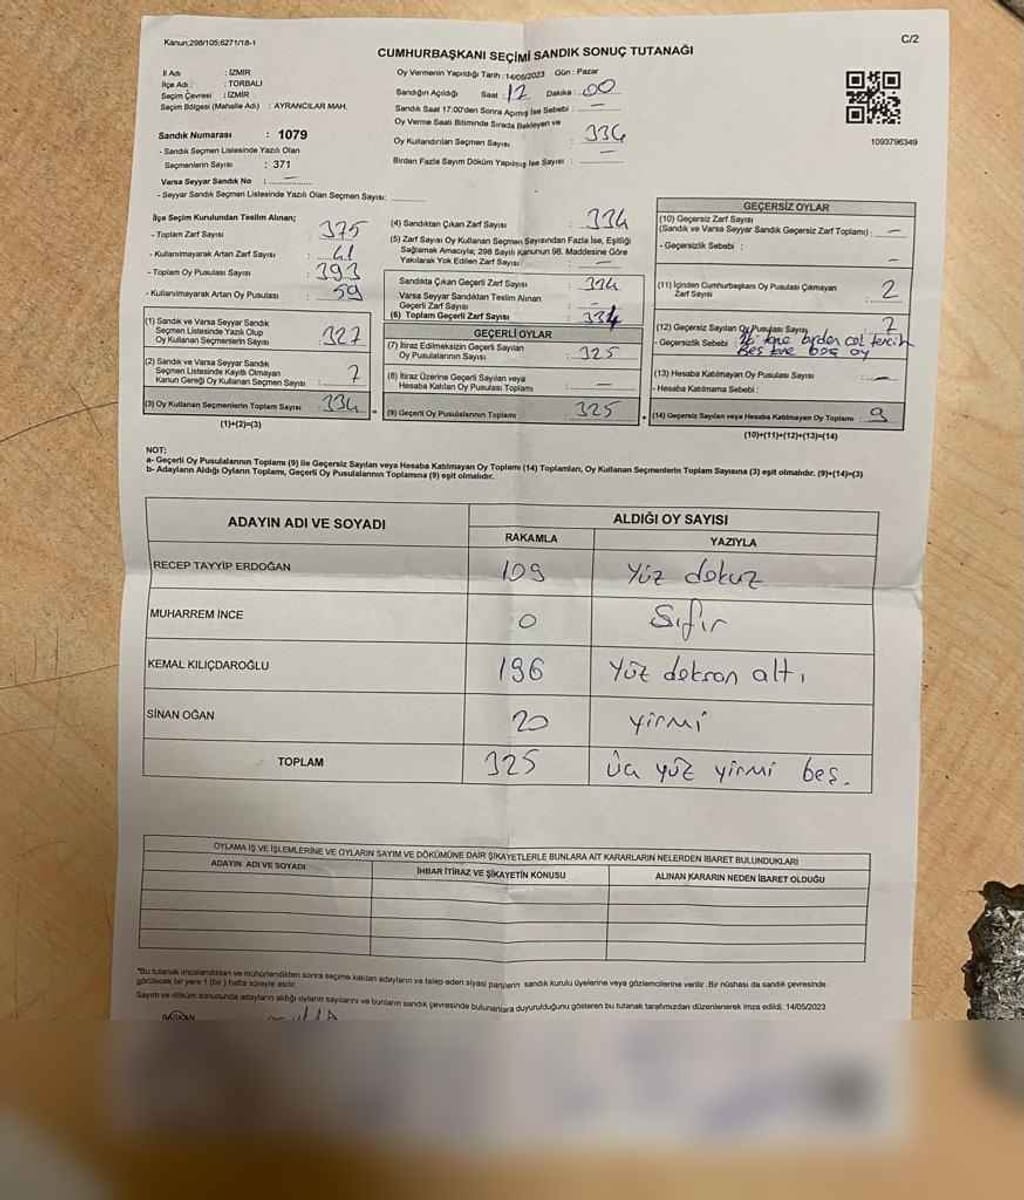 Kanun;298/105;6271/18-1
C/2
CUMHURBAŞKANI SEÇİMİ SANDIK SONUÇ TUTANAĞI
İl Adı : İZMİR
İlçe Adı : TORBALI
Seçim Çevresi : İZMİR
Seçim Bölgesi (Mahalle Adı) : AYRANCILAR MAH.
Sandık Numarası : 1079
- Sandık Seçmen Listesinde Yazılı Olan
Seçmenlerin Sayısı : 371
Varsa Seyyar Sandık No : —
- Seyyar Sandık Seçmen Listesinde Yazılı Olan Seçmen Sayısı:
Oy Vermenin Yapıldığı Tarih : 14/05/2023 Gün : Pazar
Sandığın Açıldığı Saat : 12 Dakika : 00
Sandık Saat 17:00'den Sonra Açılmış İse Sebebi : —
Oy Verme Saati Bitiminde Sırada Bekleyen ve
Oy Kullandırılan Seçmen Sayısı : 334
Birden Fazla Sayım Döküm Yapılmış İse Sayısı : —
1093796349
İlçe Seçim Kurulundan Teslim Alınan;
- Toplam Zarf Sayısı : 375
- Kullanılmayarak Artan Zarf Sayısı : 41
- Toplam Oy Pusulası Sayısı : 393
- Kullanılmayarak Artan Oy Pusulası : 59
(1) Sandık ve Varsa Seyyar Sandık
Seçmen Listesinde Yazılı Olup
Oy Kullanan Seçmenlerin Sayısı : 327
(2) Sandık ve Varsa Seyyar Sandık
Seçmen Listesinde Kayıtlı Olmayan
Kanun Gereği Oy Kullanan Seçmen Sayısı : 7
(3) Oy Kullanan Seçmenlerin Toplam Sayısı : 334
(1)+(2)=(3)
(4) Sandıktan Çıkan Zarf Sayısı : 334
(5) Zarf Sayısı Oy Kullanan Seçmen Sayısından Fazla İse, Eşitliği
Sağlamak Amacıyla; 298 Sayılı Kanunun 98. Maddesine Göre
Yakılarak Yok Edilen Zarf Sayısı : —
Sandıkta Çıkan Geçerli Zarf Sayısı : 334
Varsa Seyyar Sandıktan Teslim Alınan
Geçerli Zarf Sayısı : —
(6) Toplam Geçerli Zarf Sayısı : 334
GEÇERLİ OYLAR
(7) İtiraz Edilmeksizin Geçerli Sayılan
Oy Pusulalarının Sayısı : 325
(8) İtiraz Üzerine Geçerli Sayılan veya
Hesaba Katılan Oy Pusulası Toplamı : —
(9) Geçerli Oy Pusulalarının Toplamı : 325
GEÇERSİZ OYLAR
(10) Geçersiz Zarf Sayısı
(Sandık ve Varsa Seyyar Sandık Geçersiz Zarf Toplamı) : —
- Geçersizlik Sebebi : —
(11) İçinden Cumhurbaşkanı Oy Pusulası Çıkmayan
Zarf Sayısı : 2
(12) Geçersiz Sayılan Oy Pusulası Sayısı : 7
- Geçersizlik Sebebi : tane birden çol tercih
Beş tane boş oy
(13) Hesaba Katılmayan Oy Pusulası Sayısı : —
- Hesaba Katılmama Sebebi :
(14) Geçersiz Sayılan veya Hesaba Katılmayan Oy Toplamı : 9
(10)+(11)+(12)+(13)=(14)
NOT:
a- Geçerli Oy Pusulalarının Toplamı (9) ile Geçersiz Sayılan veya Hesaba Katılmayan Oy Toplamı (14) Toplamları, Oy Kullanan Seçmenlerin Toplam Sayısına (3) eşit olmalıdır. (9)+(14)=(3)
b- Adayların Aldığı Oyların Toplamı, Geçerli Oy Pusulalarının Toplamına (9) eşit olmalıdır.
ADAYIN ADI VE SOYADI
ALDIĞI OY SAYISI
RAKAMLA YAZIYLA
RECEP TAYYİP ERDOĞAN 109 Yüz dokuz
MUHARREM İNCE 0 Sıfır
KEMAL KILIÇDAROĞLU 196 Yüz doksan altı
SİNAN OĞAN 20 yirmi
TOPLAM 325 üç yüz yirmi beş.
OYLAMA İŞ VE İŞLEMLERİNE VE OYLARIN SAYIM VE DÖKÜMÜNE DAİR ŞİKAYETLERLE BUNLARA AİT KARARLARIN NELERDEN İBARET BULUNDUKLARI
ADAYIN ADI VE SOYADI İHBAR İTİRAZ VE ŞİKAYETİN KONUSU ALINAN KARARIN NEDEN İBARET OLDUĞU
*Bu tutanak imzalandıktan ve mühürlendikten sonra seçime katılan adayların ve talep eden siyasi partilerin sandık kurulu üyelerine veya gözlemcilerine verilir. Bir nüshası da sandık çevresinde
görülecek bir yere 1 (bir) hafta süreyle asılır.
Sayım ve döküm sonucunda adayların aldığı oyların sayılarını ve bunların sandık çevresinde bulunanlara duyurulduğunu gösteren bu tutanak tarafımızdan düzenlenerek imza edildi. 14/05/2023